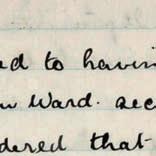 ed to havin
w Ward. acc
dered that